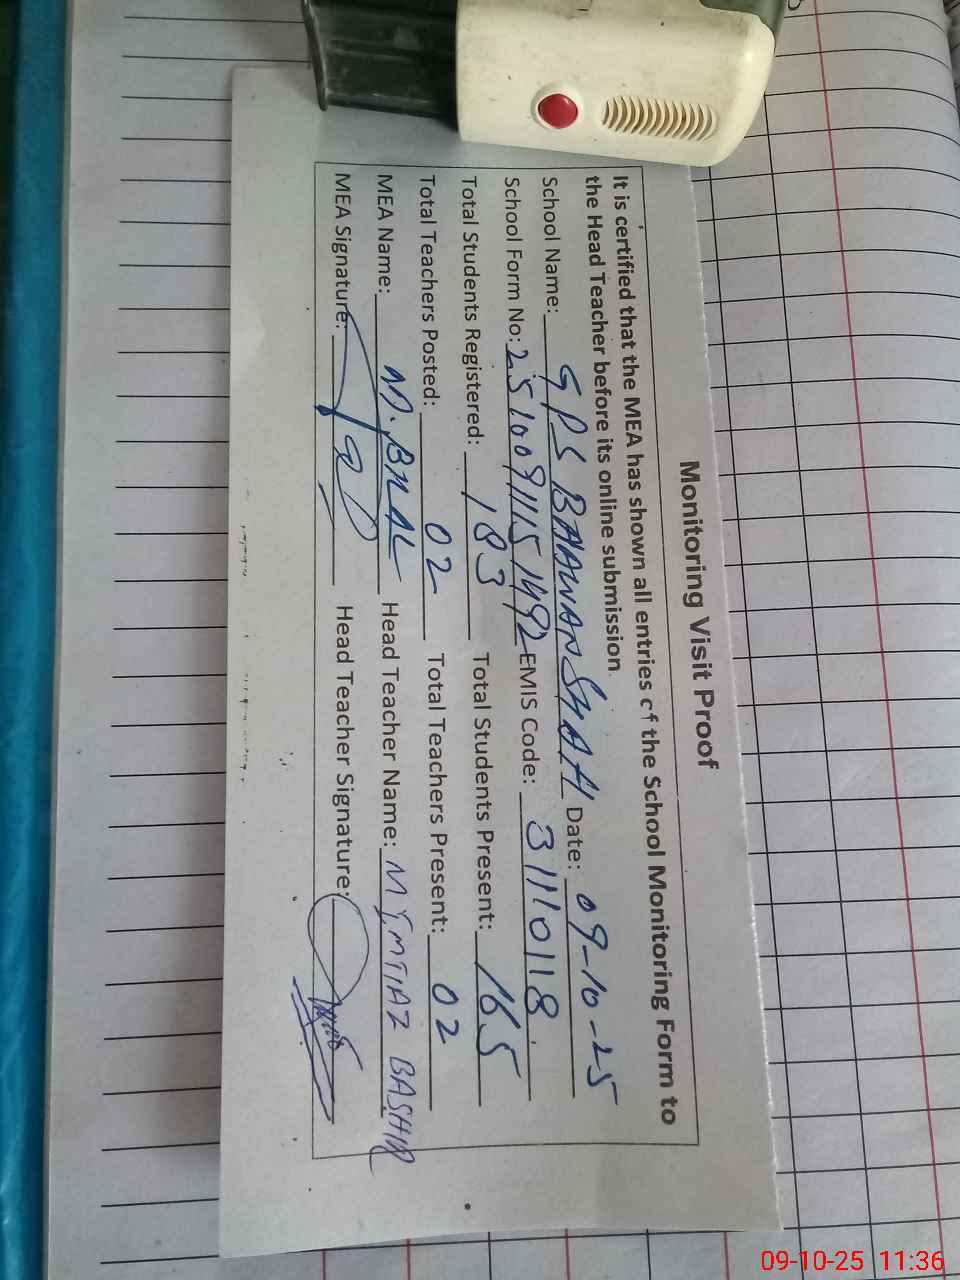 Monitoring Visit Proof
It is certified that the MEA has shown all entries of the School Monitoring Form to
the Head Teacher before its online submission
School Name: GPS BAHAWAN SHAH Date: 09-10-25
School Form No: 2510091151492 EMIS Code: 31110118
Total Students Registered: 183 Total Students Present: 165
Total Teachers Posted: 02 Total Teachers Present: 02
MEA Name: M. BILAL Head Teacher Name: M IMTIAZ BASHIR
MEA Signature: Head Teacher Signature:
09-10-25 11:36